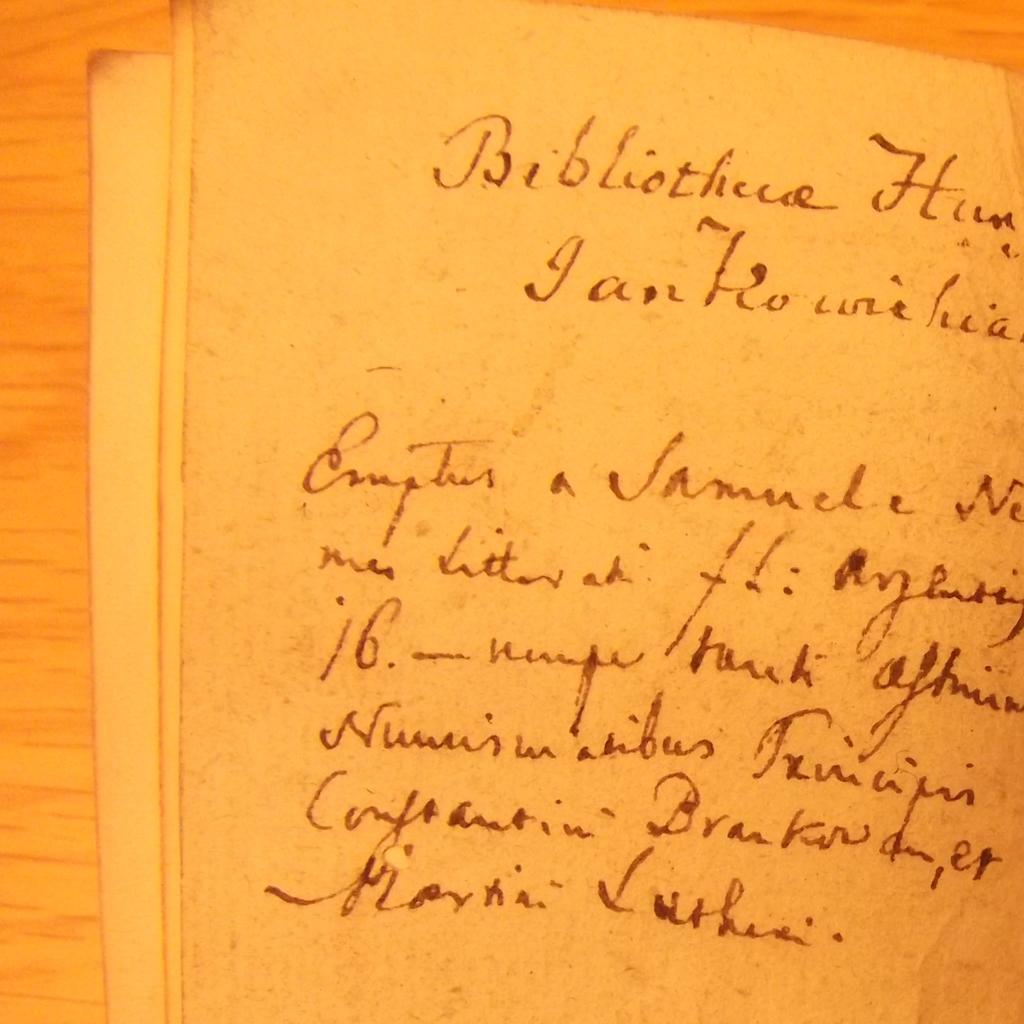 Bibliothecae Hun
Jankowichia
Emptus a Samuele Ne
mes Litterati fl: Argenteis
16. — nempe tanti aestima
Numismatibus Principis
Constantini Brankovan, et
Martini Lutheri.